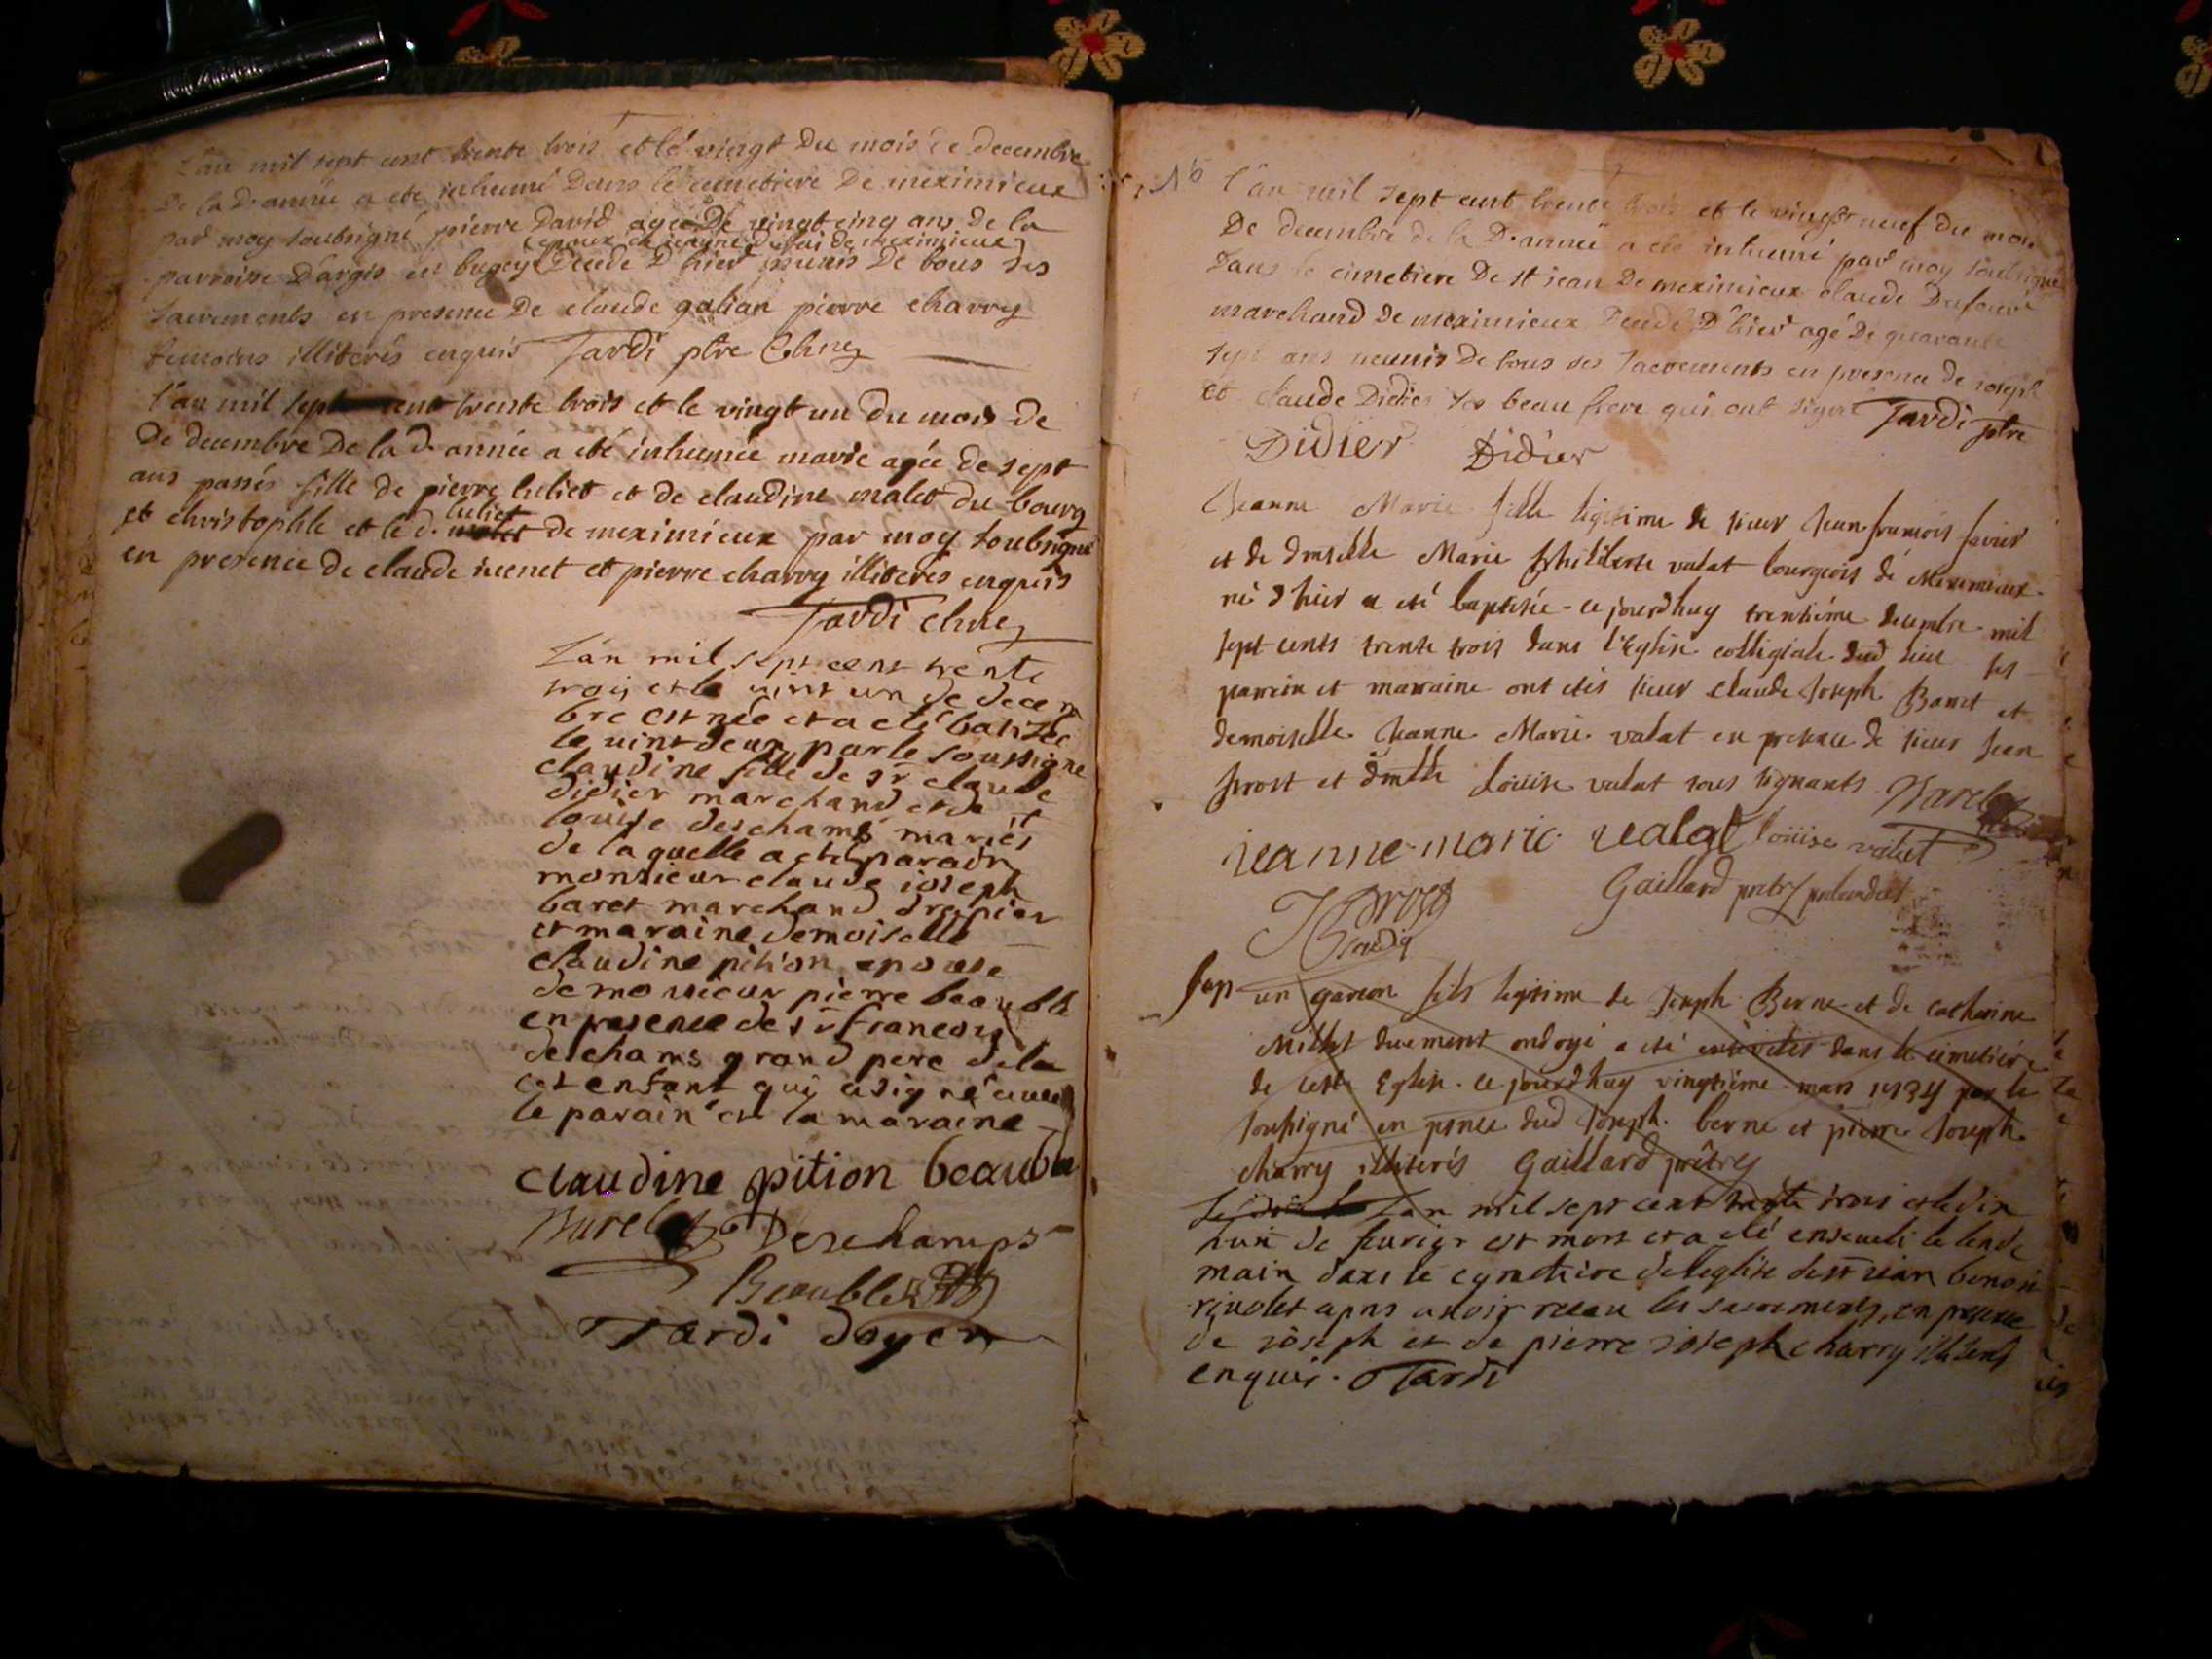 L'an mil sept cent trente trois et le vingt du mois de decembre
De la D. année a eté inhumé Dans le cimetiere De meximieux
par moy soubsigné pierre David agé De vingt cinq ans de la
(epoux de jeanne dufai de meximieux)
parroisse D'argis en bugey Decedé D'hier munis De tous ses
sacrements en presence De claude galian pierre charvy
temoins illiterés enquis Tardi ptre Chne
l'an mil sept cent trente trois et le vingt un du mois de
De decembre De la d. année a eté inhumée marie agée de sept
ans passés fille de pierre luliet et de claudine malet du bourg
luliet
st christophle et le d. malet de meximieux par moy soubsigné
en presence de claude iuenet et pierre charvy illiterés enquis
Tardi chne
L'an mil sept cent trente
trois et le vint un de decem
bre est née et a eté batizée
le vint deux par le soussigne
claudine fille de sr claude
didier marchand et de
louise deschams mariés
de la quelle a eté parain
monsieur claude ioseph
baret marchand drapier
et maraine demoiselle
claudine pition epouse
de monsieur pierre beauble
en presence de sr francois
deschams grand pere de la
cet enfant qui a signé avec
le parain et la maraine
claudine pition beauble
Deschamps
Beauble
Tardi doyen
16
l'an mil sept cent trente trois et le vingt neuf du mois
De decembre de la D. année a eté inhumé par moy soubsigné
Dans le cimetiere De st jean De meximieux claude Dufour
marchand De meximieux Decedé D'hier agé De quarante
sept ans munis De tous ses sacrements en presence de ioseph
et claude Didier ses beau frere qui ont signé Tardi ptre
Didier Didier
Jeanne Marie fille legitime de sieur Jean francois favier
et de dmselle Marie philiberte valat bourgeois de Meximieux
né d'hier a eté baptisée ce jourdhuy trentiéme decembre mil
sept cents trente trois dans l'Eglise collegiale dud lieu ses
parrein et marraine ont etés sieur Claude Joseph Baret et
demoiselle Jeanne Marie valat en presence de sieur Jean
prost et dmlle Loüise valat tous signants
jeanne marie valat loüise valat
Gaillard pretre prebendier
un garcon fils legitime de Joseph Berne et de catherine
Millet duement ondoyé a eté dans le cimetiére
de cette Eglise ce jourdhuy vingtiéme mars 1734 par le
soussigné en pnce dud Joseph berne et pierre Joseph
charvy illiterés Gaillard prêtre
L'an mil sept cent trente trois et le dix
huit de feurier est mort et a eté enseveli le lende
main dans le cymetiere de l'eglise de st iean benoit
riuolet apres auoir receu les sacrements, en presence
de ioseph et de pierre ioseph charvy illiterés
enquis. Tardi